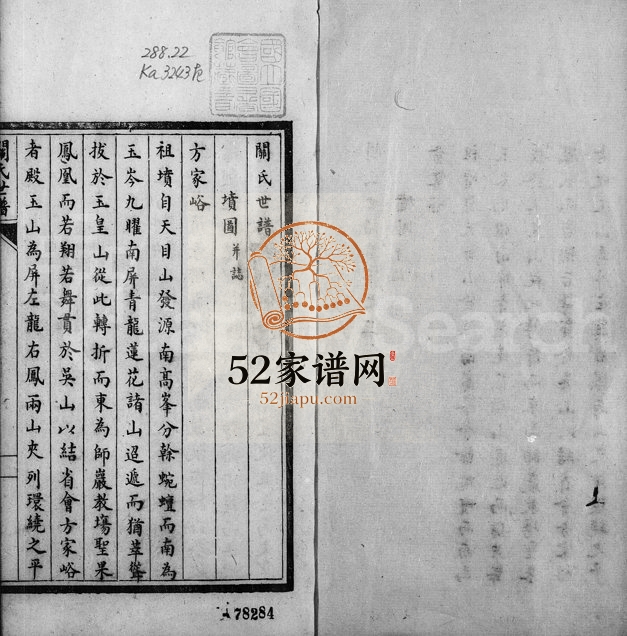 288.22
Ka 3243
關氏世譜
墳圖并誌
方家峪
祖墳自天目山發源南高峯分榦蜿蟺而南為
玉岑九曜南屏青龍蓮花諸山迢遞而猶萃聳
拔於玉皇山從此轉折而東為師巖教場聖果
鳳凰而若翔若舞貫於吳山以結省會方家峪
者殿玉山為屏左龍右鳳兩山夾列環繞之平
關氏世譜
52家谱网
52jiapu.com
Search
78284